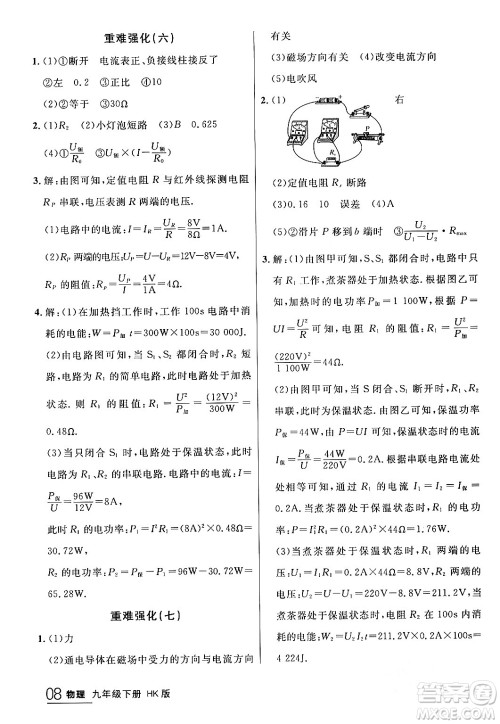 重难强化(六)
1. (1)①断开 电流表正、负接线柱接反了
②左 0.2 ③正比
(2)②等于 ③30Ω
2. (1)R₂ (2)小灯泡短路 (3)B 0.625
(4)①U额/R₀ ③U额×(I-U额/R₀)
3. 解:由图可知,定值电阻 R 与红外线探测电阻
R_P 串联,电压表测 R 两端的电压.
(1)电路中的电流:I=I_R=U_R/R=8V/8Ω=1A.
(2)R_P 两端的电压:U_P=U-U_R=12V-8V=4V.
R_P 的阻值:R_P=U_P/I=4V/1A=4Ω.
4. 解:(1)在加热挡工作时,工作 100s 电路中消
耗的电能:W=P加t=300W×100s=30 000J.
(2)由电路图可知,当 S₁、S₂ 都闭合时,R₂ 短
路,电路为 R₁ 的简单电路,此时电路处于加热
状态. 则 R₁ 的阻值:R₁=U²/P加=(12V)²/300W=
0.48Ω.
(3)当只闭合 S₁ 时,电路处于保温状态,此时
电路中电阻 R₁、R₂ 串联,电路中的电流:I=
P保/U=96W/12V=8A.
此时 R₁ 的电功率:P₁=I²R₁=(8A)²×0.48Ω=
30.72W.
R₂ 的电功率:P₂=P保-P₁=96W-30.72W=
65.28W.
重难强化(七)
1. (1)力
(2)通电导体在磁场中受力的方向与电流方向
有关
(3)磁场方向有关 (4)改变电流方向
(5)电吹风
2. (1) 右
(2)定值电阻 R₁ 断路
(3)0.16 10 误差 (4)大
(5)②滑片 P 移到 b 端时 ③U₂/(U₁-U₂)·Rmax
3. 解:(1)由图甲可知,闭合 S₀,S₁ 接 a 时,只有
R₁ 工作,煮茶器处于加热状态. 由图乙可知,
加热状态时的电功率 P加=1 100W,由 P=
UI=U²/R 可知,R₁ 的阻值:R₁=U²/P加=
(220V)²/1 100W=44Ω.
(2)由图甲可知,闭合 S₀、S₁ 接 b 时,R₁ 和 R₂
串联,此时为保温状态. 由图乙可知,保温状态
时的电功率 P保=44W,保温状态时的电流:
I=P保/U=44W/220V=0.2A. 因串联电路电流处
处相等,则通过 R₁ 的电流 I₁=I=0.2A. 当
煮茶器处于保温状态时,R₁ 的电功率:P₁=
I₁²R₁=(0.2A)²×44Ω=1.76W.
(3)当煮茶器处于保温状态时,R₁ 两端的电
压:U₁=I₁R₁=0.2A×44Ω=8.8V,R₂ 两端
的电压:U₂=U-U₁=220V-8.8V=211.2V.
当煮茶器处于保温状态时,R₂ 在 100s 内消耗
的电能:W₂=U₂It=211.2V×0.2A×100s=
4 224J.
08 物理 九年级下册 HK版